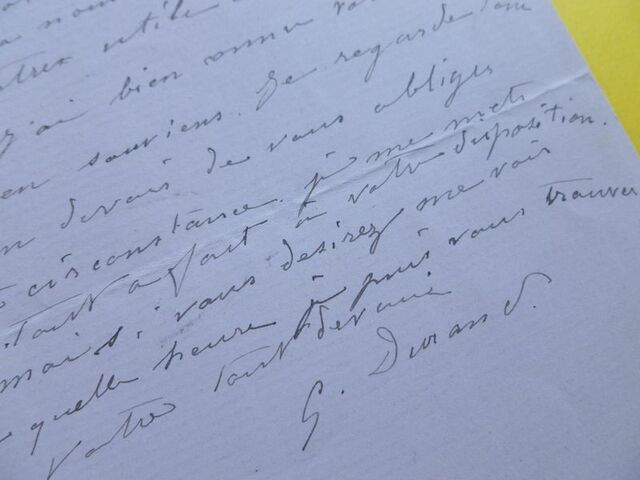 nom
utile
j'ai bien connu
en souviens. Je regarde donc
un devoir de vous obliger
circonstance. je me mets
tout à fait à votre disposition.
mais, vous desirez me voir
quelle heure je puis vous trouver
Votre tout dévoué
G. Durand.